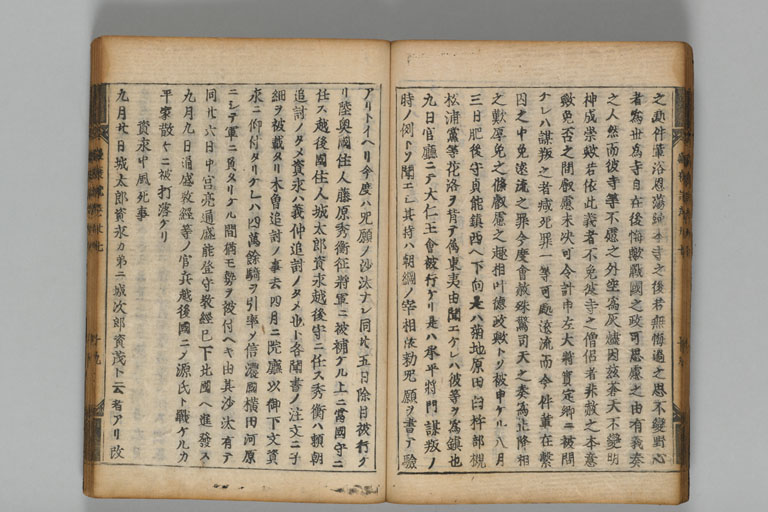 之趣件輩浴恩蕩之後者無悔過之思不變野心
者為世為寺自在後悔歟戰國之政可思慮之由有議奏
之人然而彼寺等不慮之外空為灰燼因茲蒼天不變明
神成祟歟若依此義者不免彼寺之僧侶者非赦之本意
歟免否之間叡慮未決可令計申左大将實定卿ニ被問
ケレハ謀叛之者減死罪一等可處遠流而今件輩在繋
囚之中免遠流之罪今度會赦殊驚司天之奏為止降相
之歎厚免之條叡慮之趣相叶德政歟トソ被申ケル八月
三日肥後守貞能鎮西ヘ下向是ハ菊地原田臼杵部槻
松浦黨等花洛ヲ背テ属東夷由聞エケレハ彼等ヲ為鎮也
九日官廳ニテ大仁王會被行ケリ是ハ承平將門謀叛ノ
時ノ例トソ聞エシ其持ハ朝綱ノ宰相依勅咒願ヲ書テ驗
アリトイヘリ今度ハ咒願ノ沙汰ナシ同廿五日除目被行ケ
リ陸奥國住人藤原秀衡征將軍ニ被補ケル上ニ當國守ニ
任ス越後國住人城太郎資永越後守ニ任ス秀衡ハ頼朝
追討ノタメ資永ハ義仲追討ノタメ也ト各聞書ノ注文ニ子
細ヲ被載タリ木曽追討ノ事去四月ニ院廳以御下文資
永ニ仰付タリケレハ四萬餘騎ヲ引率ノ信濃國横田河原
ニシテ軍ニ負タリケル間猶モ勢ヲ被付ヘキ由其沙汰有テ
同廿六日中宮亮通盛能登守教經已下北國ヘ進發ス
九月九日通盛教經等ノ官兵越後國ニノ源氏ト戰ケルカ
平家散々ニ被打落ケリ
資永中風死事
九月廿日城太郎資永カ第二城次郎資茂ト云者アリ改